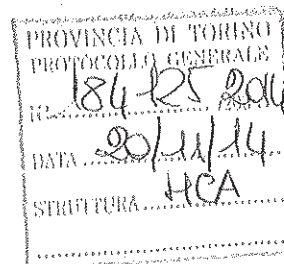 PROVINCIA DI TORINO
PROTOCOLLO GENERALE
N. 184-125 2014
DATA ..... 20/11/14
STRUTTURA ..... HCA